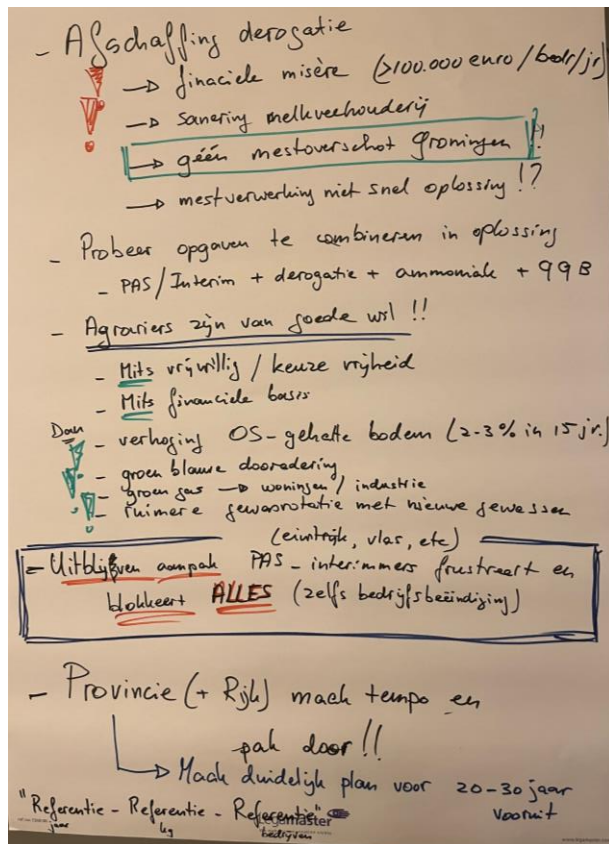 - Afschaffing derogatie
→ finaciele misère (>100.000 euro/bedr/jr)
→ sanering melkveehouderij
→ géén mestoverschot Groningen !?!
→ mestverwerking niet snel oplossing !?
- Probeer opgaven te combineren in oplossing
- PAS/Interim + derogatie + ammoniak + 99B
- Agrariers zijn van goede wil !!
- Mits vrijwillig / keuze vrijheid
- Mits financiele basis
Dan
- verhoging OS-gehalte bodem (2-3% in 15 jr.
- groen blauwe dooradering
- groen gas → woningen / industrie
- ruimere gewasrotatie met nieuwe gewassen
(eiwitrijk, vlas, etc)
- Uitblijven aanpak PAS-interimmers frustreert en
blokkeert ALLES (zelfs bedrijfsbeëindiging)
- Provincie (+ Rijk) maak tempo en
pak door!!
→ Maak duidelijk plan voor 20-30 jaar
vooruit
"Referentie - Referentie - Referentie"
jaar kg bedrijven
legamaster